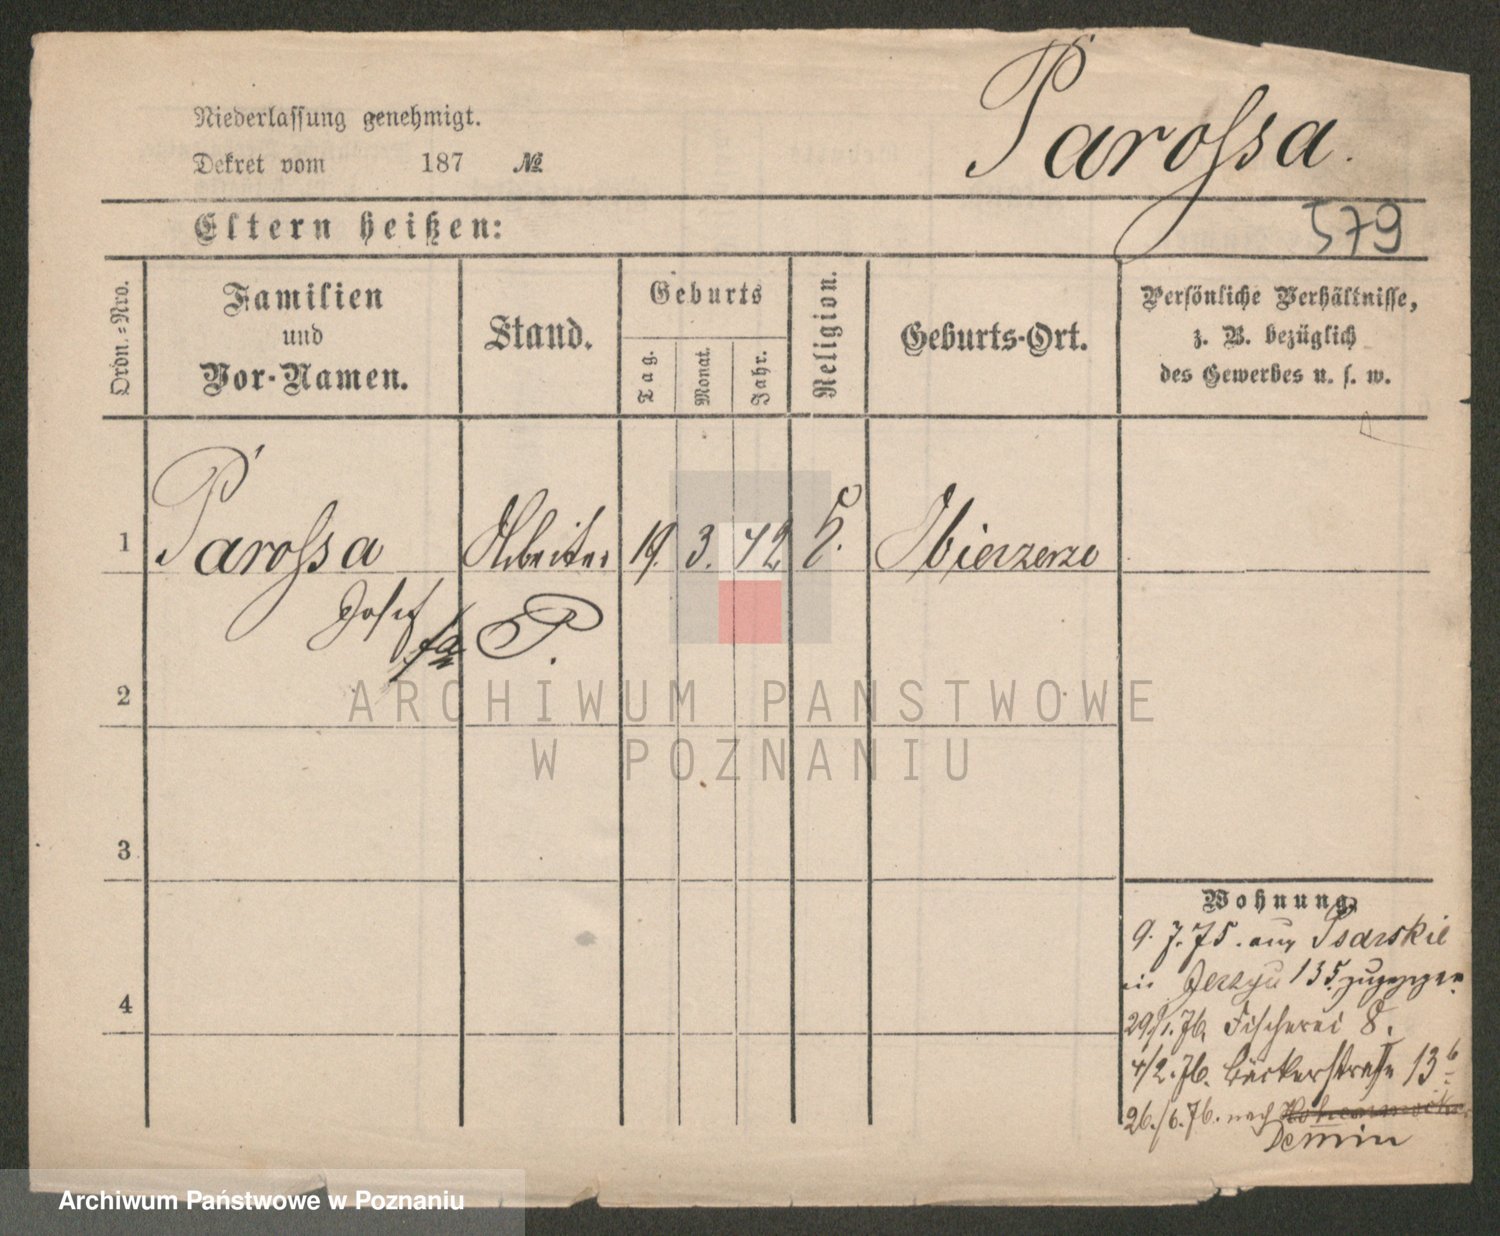 Parossa.
Niederlassung genehmigt.
Dekret vom 187 №
579
Eltern heißen:
Ordn.-Nro.
Familien
und
Vor-Namen.
Stand.
Geburts
Tag.
Monat.
Jahr.
Religion.
Geburts-Ort.
Persönliche Verhältnisse,
z. B. bezüglich
des Gewerbes u. s. w.
1 Parossa Arbeiter 19. 3. 42
Josef P.
2
ARCHIWUM PANSTWOWE
W POZNANIU
3
4
Wohnung.
9. 7. 75. aus Psarskie
in Jerzyu 135 zugezogen
29/1. 76. Fischerei 8.
4/2. 76. Bäckerstraße 13b
26./6. 76. nach
Demin
Archiwum Państwowe w Poznaniu